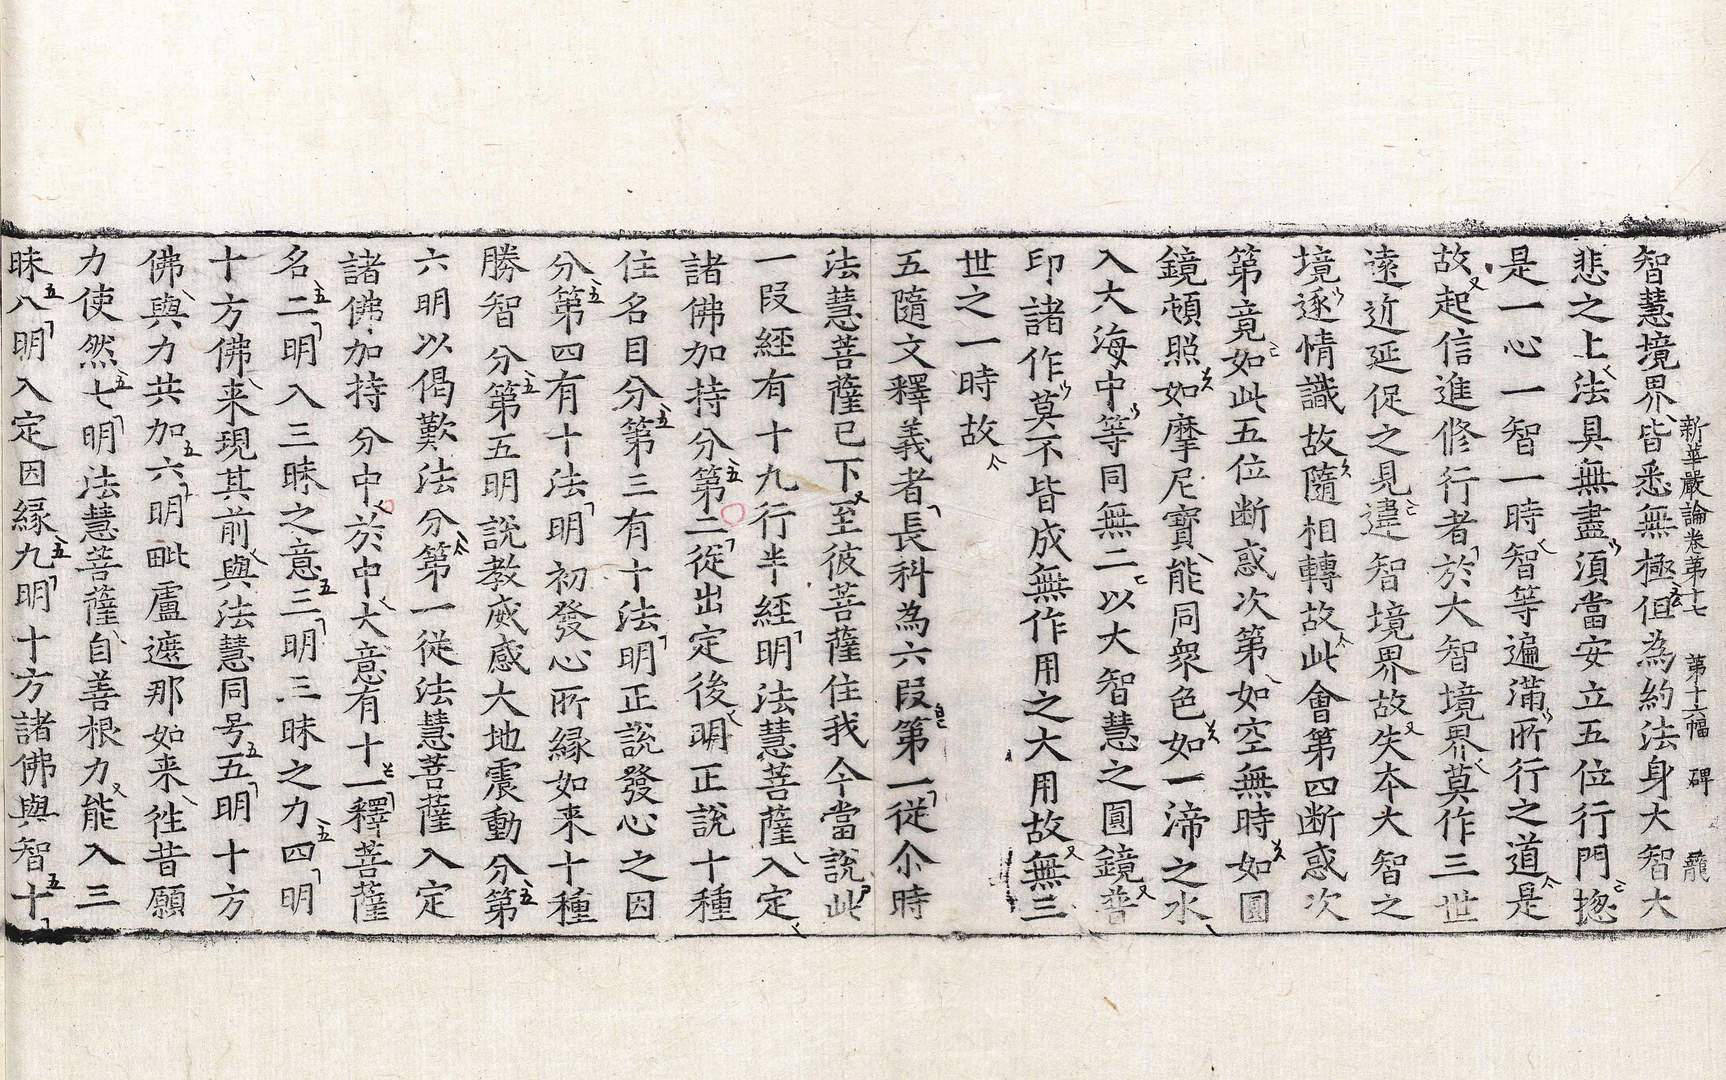 新華嚴論卷第十七　第十六幅　碑　龍
智慧境界皆悉無極但為約法身大智大
悲之上法具無盡須當安立五位行門揔
是一心一智一時智等遍滿所行之道是
故起信進修行者於大智境界莫作三世
遠近延促之見違智境界故失本大智之
境逐情識故隨相轉故此會第四断惑次
第竟如此五位断惑次第如空無時如圓
鏡頓照如摩尼寶能同衆色如一渧之水
入大海中等同無二以大智慧之圓鏡普
印諸作莫不皆成無作用之大用故無三
世之一時故
五隨文釋義者長科為六段第一從尒時
法慧菩薩已下至彼菩薩住我今當說此
一段經有十九行半經明法慧菩薩入定
諸佛加持分第二從出定後明正說十種
住名目分第三有十法明正說發心之因
分第四有十法明初發心所緣如来十種
勝智分第五明說教威感大地震動分第
六明以偈歎法分第一從法慧菩薩入定
諸佛加持分中於中大意有十一釋菩薩
名二明入三昧之意三明三昧之力四明
十方佛来現其前與法慧同号五明十方
佛與力共加六明毗盧遮那如来徃昔願
力使然七明法慧菩薩自善根力能入三
昧八明入定因緣九明十方諸佛與智十